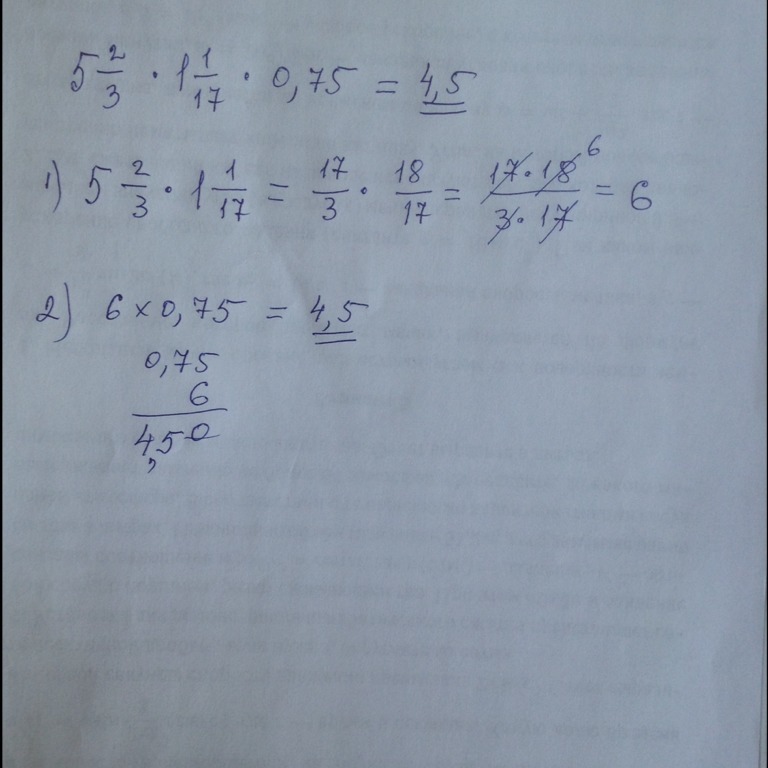 5 2/3 · 1 1/17 · 0,75 = 4,5
1) 5 2/3 · 1 1/17 = 17/3 · 18/17 = 17·18 6/3·17 = 6
2) 6 × 0,75 = 4,5
0,75
6
4,50